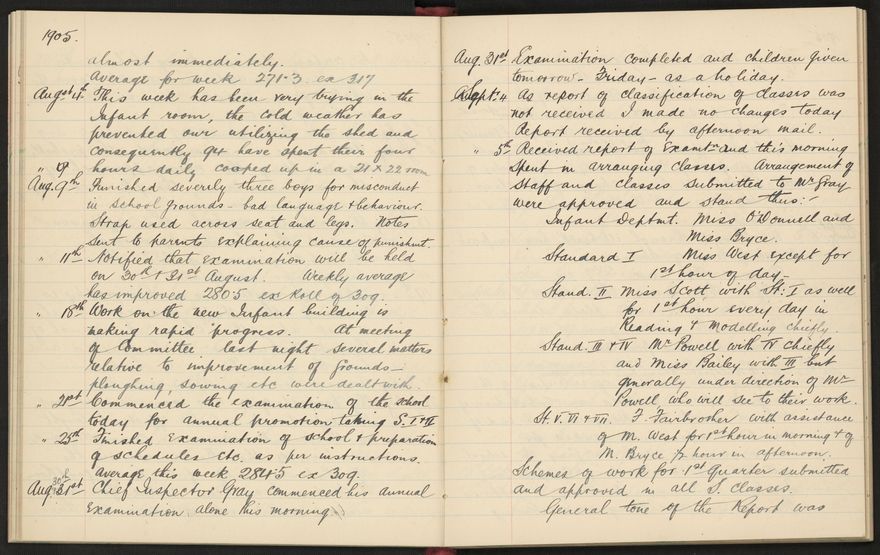 1905.
almost immediately.
Average for week 271·3 ex 317
Augst 4th This week has been very trying in the
Infant room, the cold weather has
prevented our utilizing the shed and
consequently have spent their four
hours daily cooped up in a 21 x 22 room
Aug. 9th Punished severely three boys for misconduct
in school grounds - bad language & behaviour.
Strap used across seat and legs. Notes
sent to parents explaining cause of punishmt.
" 11th Notified that Examination will be held
on 30th & 31st August. Weekly average
has improved 280·5 ex Roll of 309.
" 18th Work on the new Infant building is
making rapid progress. At meeting
of Committee last night several matters
relative to improvement of Grounds -
ploughing, sowing etc were dealt with.
" 21st Commenced the examination of the school
today for annual promotion taking S. I & II
" 25th Finished Examination of school & preparation
of schedules etc. as per instructions.
Average this week 284·5 ex 309.
Aug 30th 31st Chief Inspector Gray commenced his annual
Examination alone this morning
Aug. 31st Examination completed and children given
tomorrow - Friday - as a holiday.
Sept. 4 As report of classification of classes was
not received I made no changes today
Report received by afternoon mail.
" 5th Received report of Examtn and this morning
spent in arranging classes. Arrangement of
staff and classes submitted to Mr Gray
were approved and stand thus:-
Infant Deptmt. Miss O'Donnell and
Miss Bryce.
Standard I Miss West except for
1st hour of day -
Stand. II Miss Scott with St. I as well
for 1st hour every day in
Reading & Modelling chiefly.
Stand. III & IV Mr Powell with IV chiefly
and Miss Bailey with III but
generally under direction of Mr
Powell who will see to their work.
St. V. VI & VII. F. Fairbrother with assistance
of M. West for 1st hour in morning & of
M. Bryce ½ hour in afternoon.
Schemes of work for 1st Quarter submitted
and approved in all S. classes.
General tone of the Report was